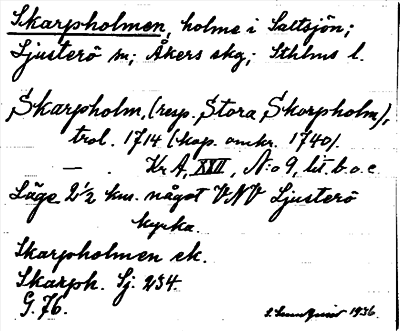 Skarpholmen, holme i Saltsjön;
Ljusterö sn; Åkers skg; Sthlms l.
Skarpholm, (resp. Stora Skarpholm),
trol. 1714 (kop. omkr. 1740).
— . Kr A, XVII, N:o 9, lit. b. o. c.
Läge 2½ km. något VNV Ljusterö
kyrka.
Skarpholmen ek.
Skarph. Sj. 234.
G. 76.
1936.